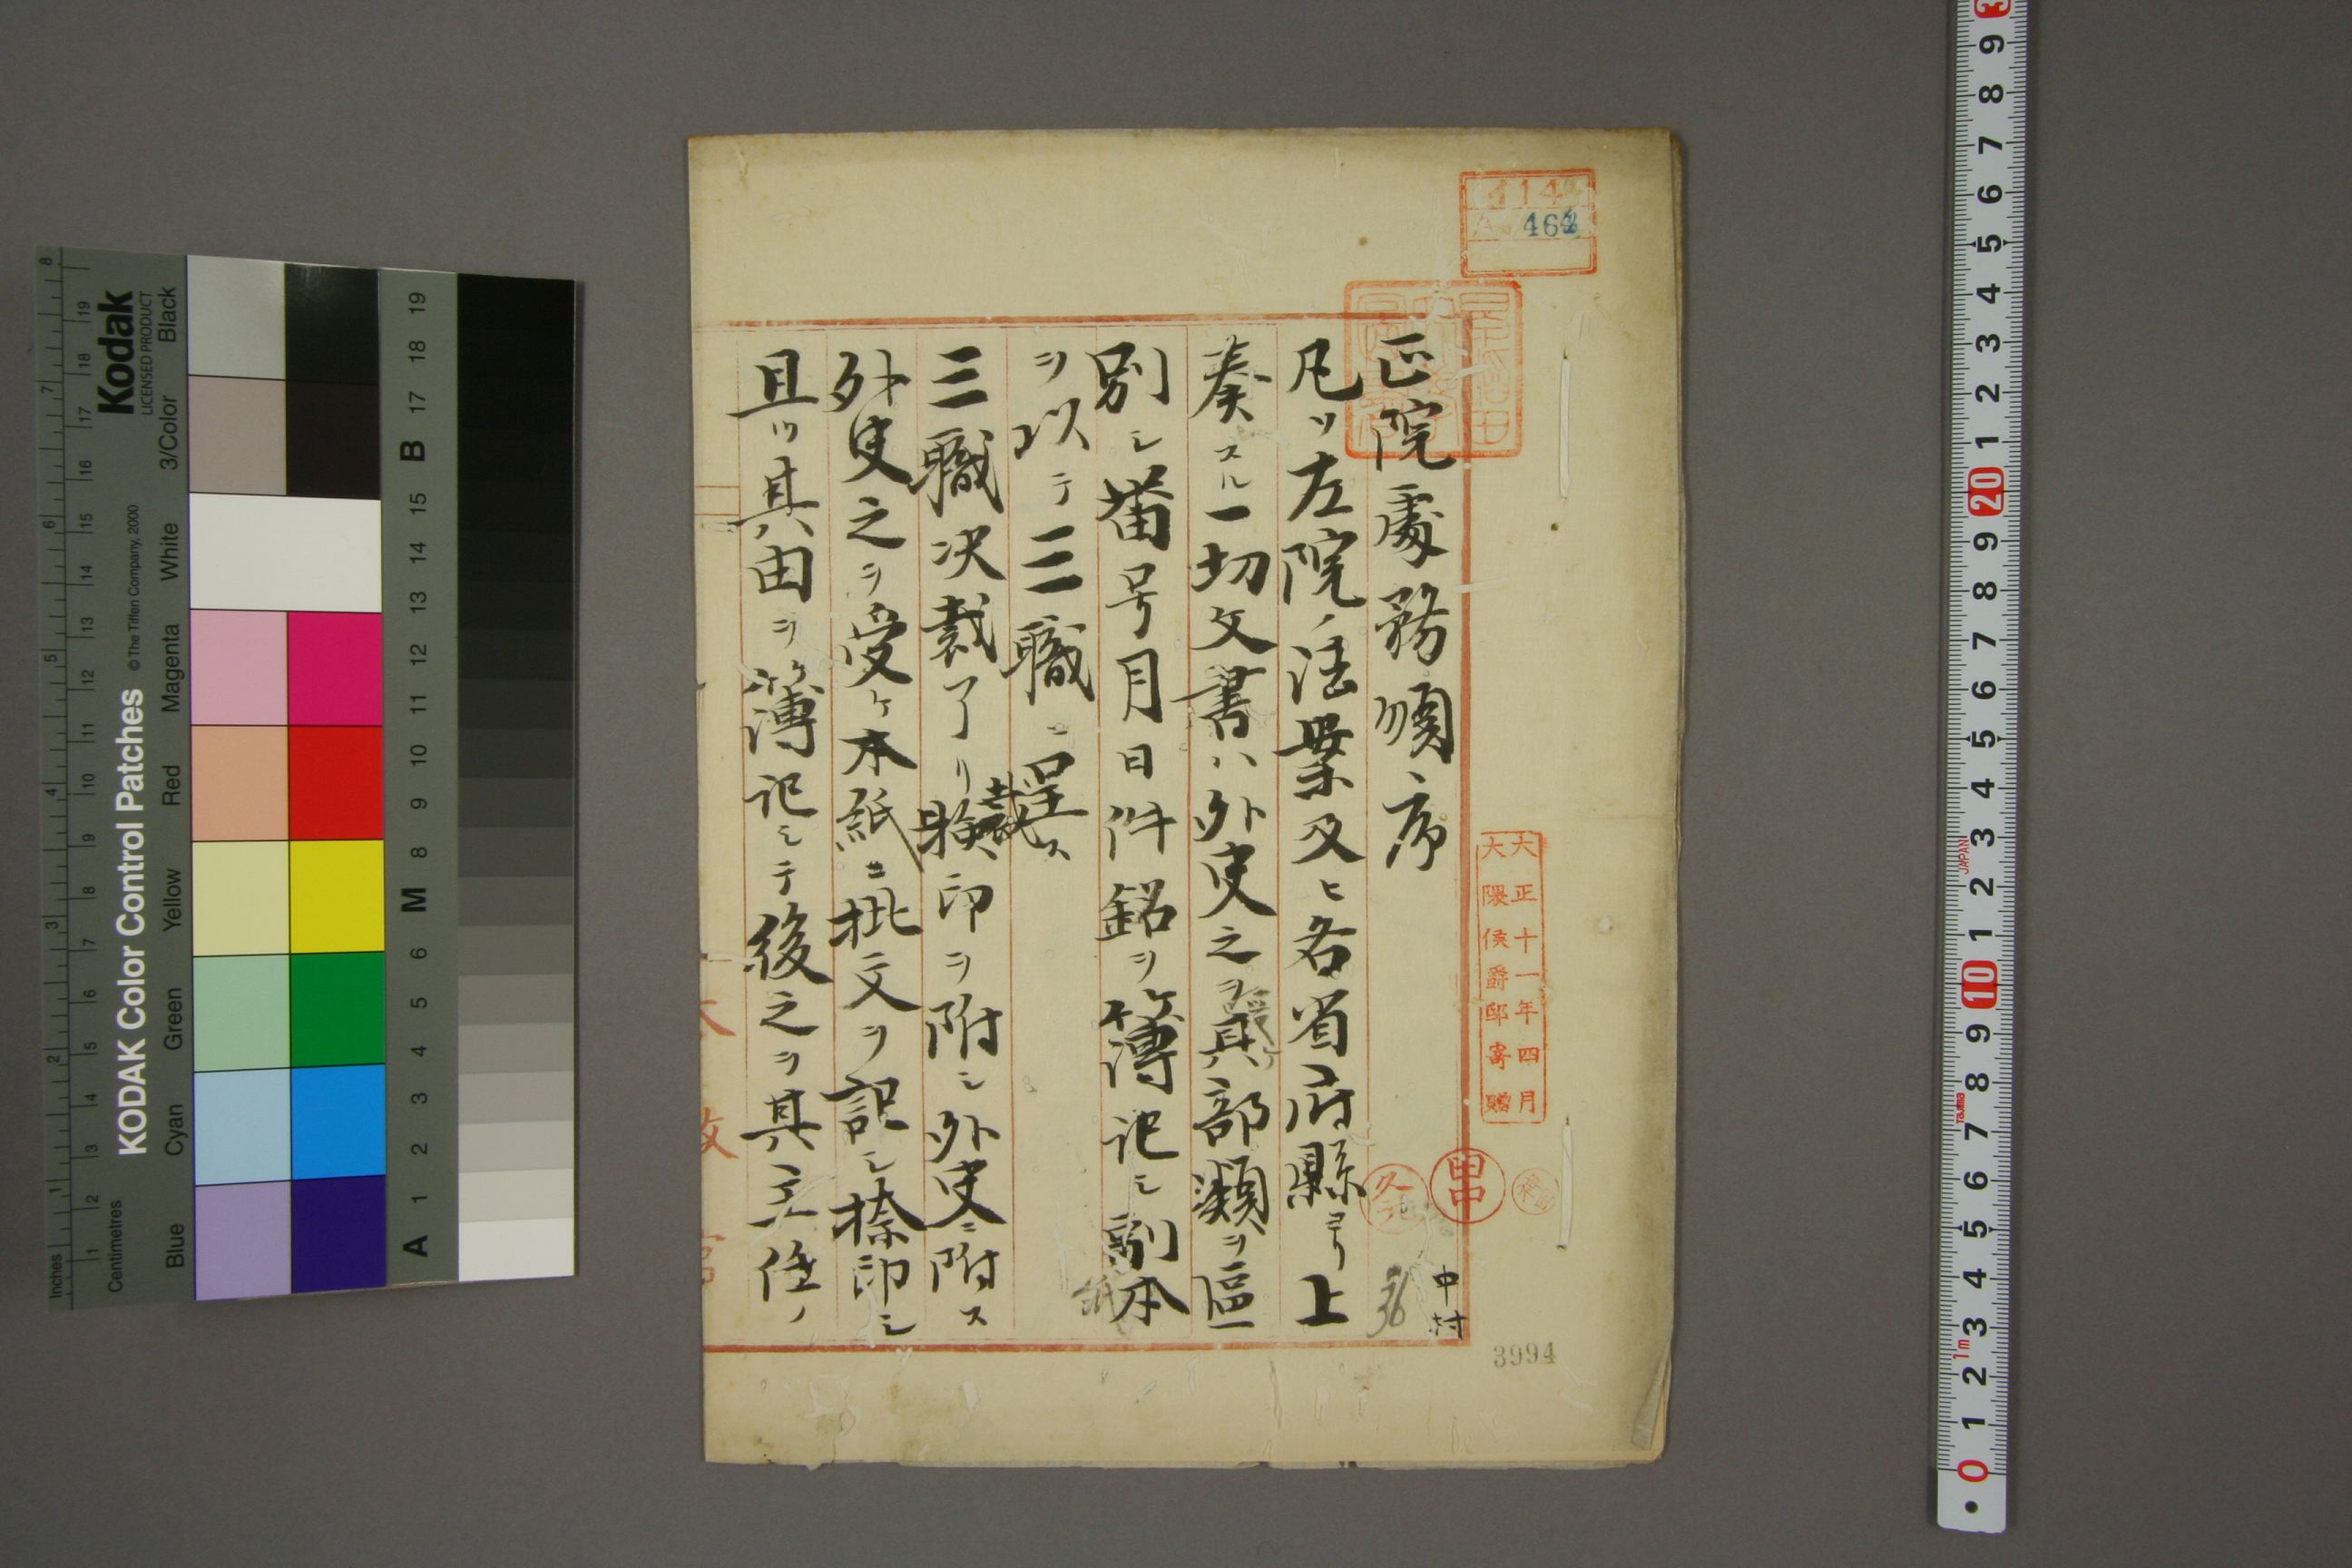 正院處務順序
凡ソ左院ノ法案及ヒ各省府縣ヨリ上
奏スル一切文書ハ外史之ヲ其部類ヲ區
別シ番号月日件銘ヲ簿記シ副本
紙
ヲ以テ三職ニ呈ス
三職决裁了リ檢印ヲ附シ外史ニ附ス
裁
外史之ヲ受ケ本紙ニ批文ヲ記シ捺印シ
且ツ其由ヲ簿記シテ後之ヲ其主任ノ
中村
36
大正十一年四月
大隈侯爵邸寄贈
田中
114
A 464
3994
Kodak
LICENSED PRODUCT
KODAK Color Control Patches
© The Tiffen Company, 2000
Black
3/Color
White
Magenta
Red
Yellow
Green
Cyan
Blue
Inches
Centimetres
1 2 3 4 5 6 7 8
1 2 3 4 5 6 7 8 9 10 11 12 13 14 15 16 17 18 19
A 1 2 3 4 5 6 M 8 9 10 11 12 13 14 15 B 17 18 19
0 1 2 3 4 5 6 7 8 9 10 1 2 3 4 5 6 7 8 9 20 1 2 3 4 5 6 7 8 9
1m
Tajima
JAPAN